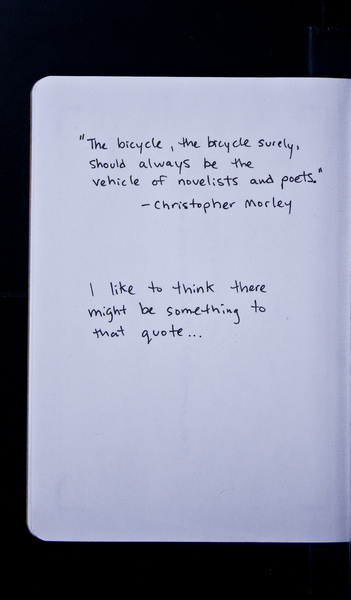 "The bicycle, the bicycle surely,
should always be the
vehicle of novelists and poets."
- Christopher Morley
I like to think there
might be something to
that quote...